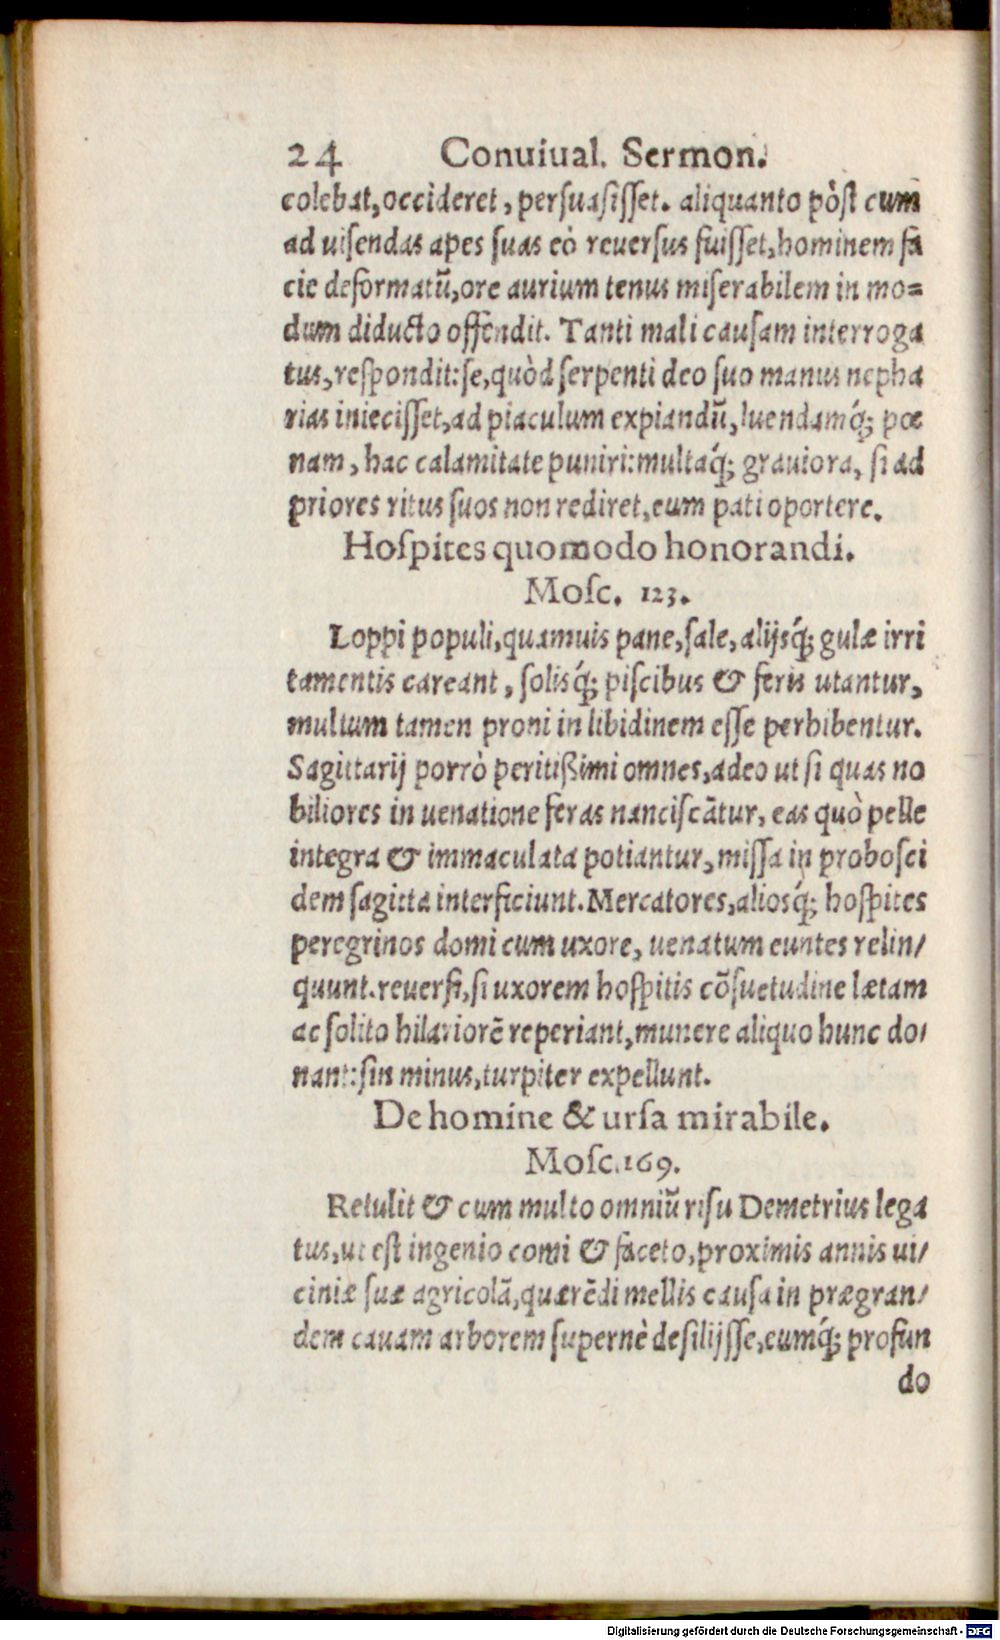 24 Conuiual. Sermon.
colebat, occideret, persuasisset. aliquanto pòst cum
ad uisendas apes suas eò reuersus fuisset, hominem fa
cie deformatũ, ore aurium tenus miserabilem in mo=
dum diducto offendit. Tanti mali causam interroga
tus, respondit: se, quòd serpenti deo suo manus nepha
rias iniecisset, ad piaculum expiandũ, luendamq́; pœ
nam, hac calamitate puniri: multaq́; grauiora, si ad
priores ritus suos non rediret, eum pati oportere.
Hoſpites quomodo honorandi.
Moſc. 123.
Loppi populi, quamuis pane, ſale, alijsq́; gulæ irri
tamentis careant, ſolisq́; piſcibus & feris utantur,
multum tamen proni in libidinem eſſe perhibentur.
Sagittarij porrò peritißimi omnes, adeo ut ſi quas no
biliores in uenatione feras nanciſcãtur, eas quò pelle
integra & immaculata potiantur, miſſa in proboſci
dem ſagitta interficiunt. Mercatores, aliosq́; hoſpites
peregrinos domi cum uxore, uenatum euntes relin/
quunt. reuerſi, ſi uxorem hoſpitis cõſuetudine lætam
ac ſolito hilariorẽ reperiant, munere aliquo hunc do/
nant: ſin minus, turpiter expellunt.
De homine & urſa mirabile.
Moſc. 169.
Retulit & cum multo omniũ riſu Demetrius lega
tus, ut eſt ingenio comi & faceto, proximis annis ui/
ciniæ ſuæ agricolã, quærẽdi mellis cauſa in prægran/
dem cauam arborem ſupernè deſilijſſe, eumq́; profun
do
Digitalisierung gefördert durch die Deutsche Forschungsgemeinschaft - DFG